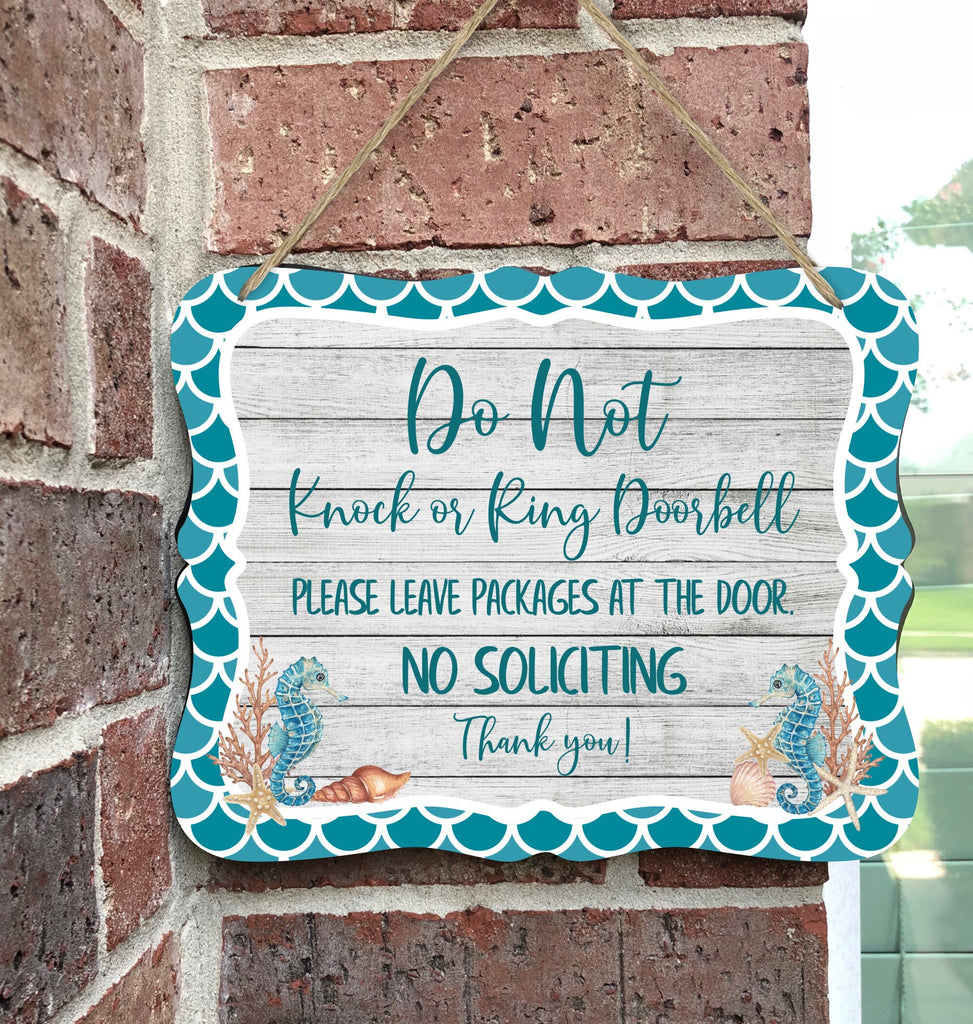 Do Not
Knock or Ring Doorbell
PLEASE LEAVE PACKAGES AT THE DOOR.
NO SOLICITING
Thank you!